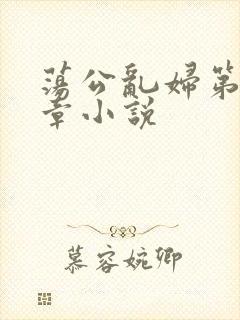 蕩公亂婦第
章小説
慕容婉卿